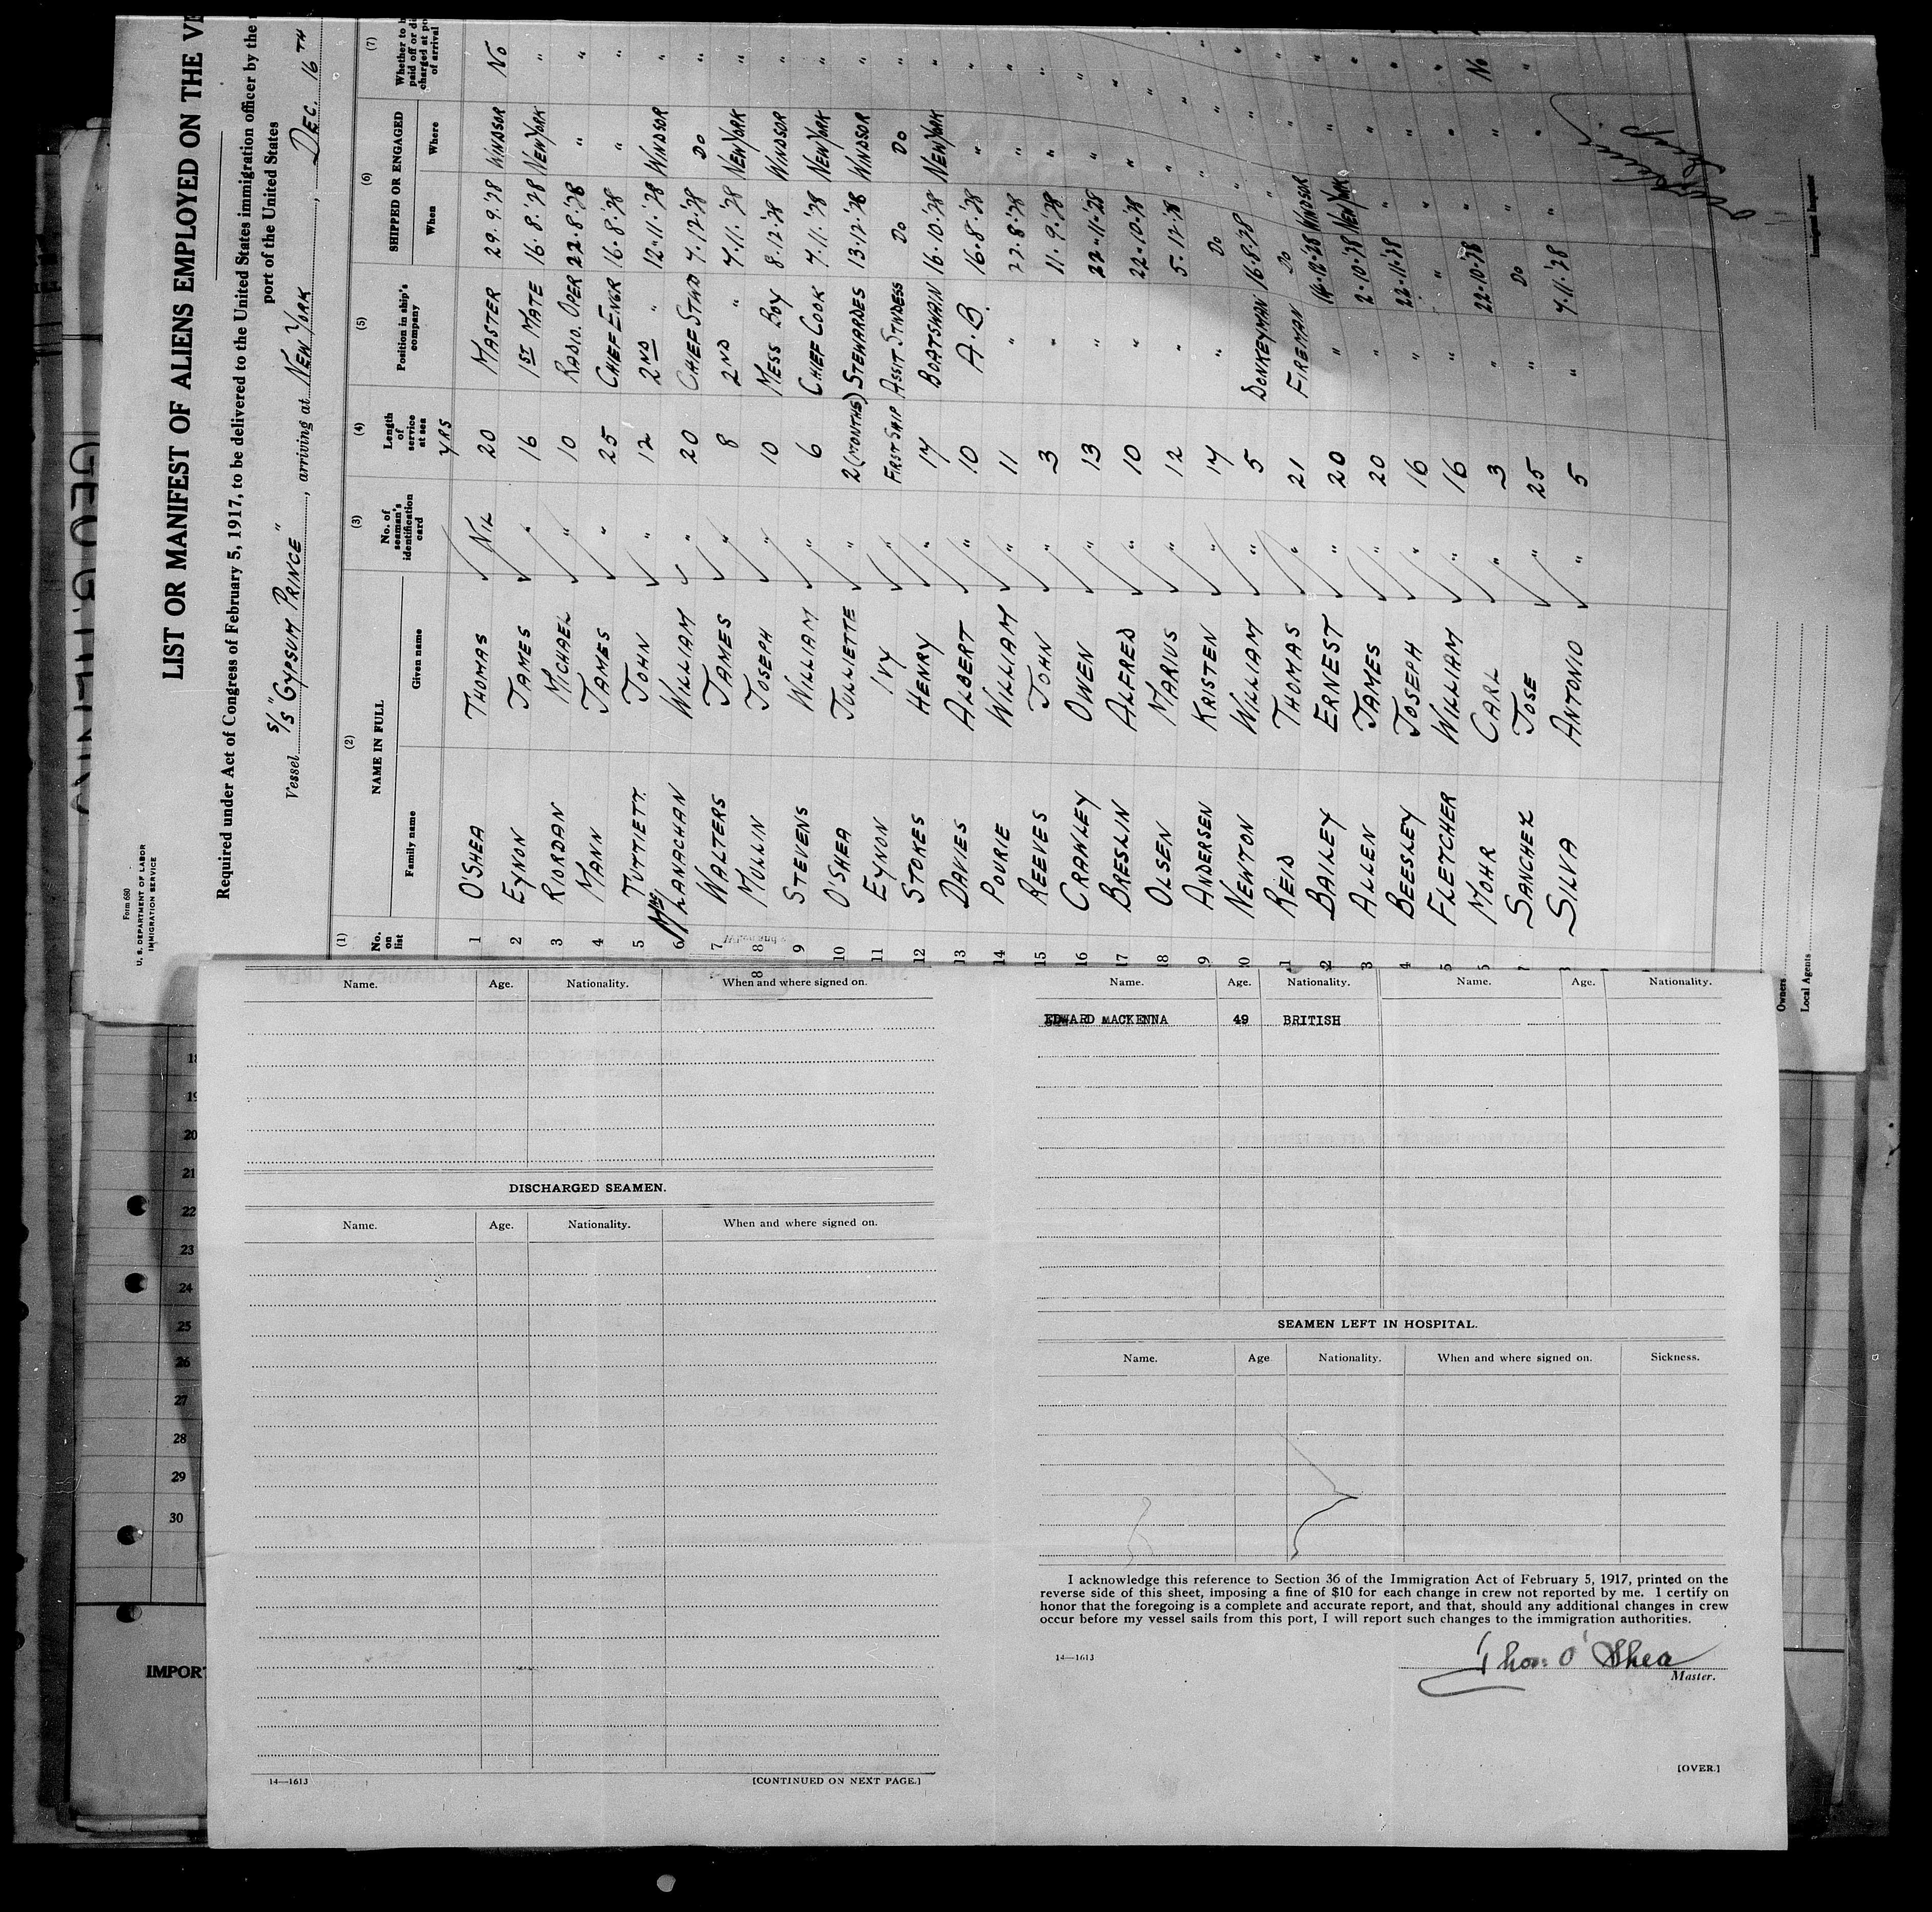 Form 680
U. S. DEPARTMENT OF LABOR
IMMIGRATION SERVICE
LIST OR MANIFEST OF ALIENS EMPLOYED ON THE
Required under Act of Congress of February 5, 1917, to be delivered to the United States immigration officer by the
port of the United States
Vessel S/S "GYPSUM PRINCE", arriving at NEW YORK, DEC. 16TH
(1) (2) (3) (4) (5) (6) (7)
No. on list NAME IN FULL No. of seaman's identification card Length of service at sea Position in ship's company SHIPPED OR ENGAGED Whether to b paid off or di charged at po of arrival
Family name Given name YRS When Where
1 O'SHEA THOMAS NIL 20 MASTER 29.9.'28 WINDSOR NO
2 EYNON JAMES " 16 1ST MATE 16.8.'28 NEW YORK "
3 RIORDAN MICHAEL " 10 RADIO. OPER 22.8.'28 " "
4 MANN JAMES " 25 CHIEF ENGR 16.8.'28 " "
5 TUTTIETT. JOHN " 12 2ND " 12.11.'28 WINDSOR "
6 LANACHAN WILLIAM " 20 CHIEF STWD 7.12.'28 DO "
7 WALTERS JAMES " 8 2ND " 7.11.'28 NEW YORK "
8 MULLIN JOSEPH " 10 MESS BOY 8.12.'28 WINDSOR "
9 STEVENS WILLIAM " 6 CHIEF COOK 7.11.'28 NEW YORK "
10 O'SHEA JULLIETTE " 2 (MONTHS) STEWARDES 13.12.'28 WINDSOR "
11 EYNON IVY " FIRST SHIP ASSIT STWDESS DO DO "
12 STOKES HENRY " 14 BOATSWAIN 16.10.'28 NEW YORK "
13 DAVIES ALBERT " 10 A.B. 16.8.'28 " "
14 POURIE WILLIAM " 11 " 22.8.'28 " "
15 REEVES JOHN " 3 " 11.9.'28 " "
16 CRAWLEY OWEN " 13 " 22.11.'28 " "
17 BRESLIN ALFRED " 10 " 22.10.'28 " "
18 OLSEN MARIUS " 12 " 5.12.'28 " "
9 ANDERSEN KRISTEN " 14 " DO " "
0 NEWTON WILLIAM " 5 DONKEYMAN 16.8.'28 " "
1 REID THOMAS " 21 FIREMAN DO " "
2 BAILEY ERNEST " 20 " 14.12.'28 WINDSOR "
3 ALLEN JAMES " 20 " 2.10.'28 NEW YORK "
4 BEESLEY JOSEPH " 16 " 22.11.'28 " "
5 FLETCHER WILLIAM " 16 " " " "
MOHR CARL " 3 " 22.10.'28 " NO
SANCHEZ JOSE " 25 " DO " "
SILVA ANTONIO " 5 " 7.11.'28 " "
Immigrant Inspector
Owners
Local Agents
Name. Age. Nationality. When and where signed on.
DISCHARGED SEAMEN.
Name. Age. Nationality. When and where signed on.
14—1613 [CONTINUED ON NEXT PAGE.]
Name. Age. Nationality. Name. Age. Nationality.
EDWARD MACKENNA 49 BRITISH
SEAMEN LEFT IN HOSPITAL.
Name. Age Nationality. When and where signed on. Sickness.
I acknowledge this reference to Section 36 of the Immigration Act of February 5, 1917, printed on the
reverse side of this sheet, imposing a fine of $10 for each change in crew not reported by me. I certify on
honor that the foregoing is a complete and accurate report, and that, should any additional changes in crew
occur before my vessel sails from this port, I will report such changes to the immigration authorities.
Thos. O'Shea
14—1613 Master.
[OVER.]
18
19
20
21
22
23
24
25
26
27
28
29
30
IMPOR